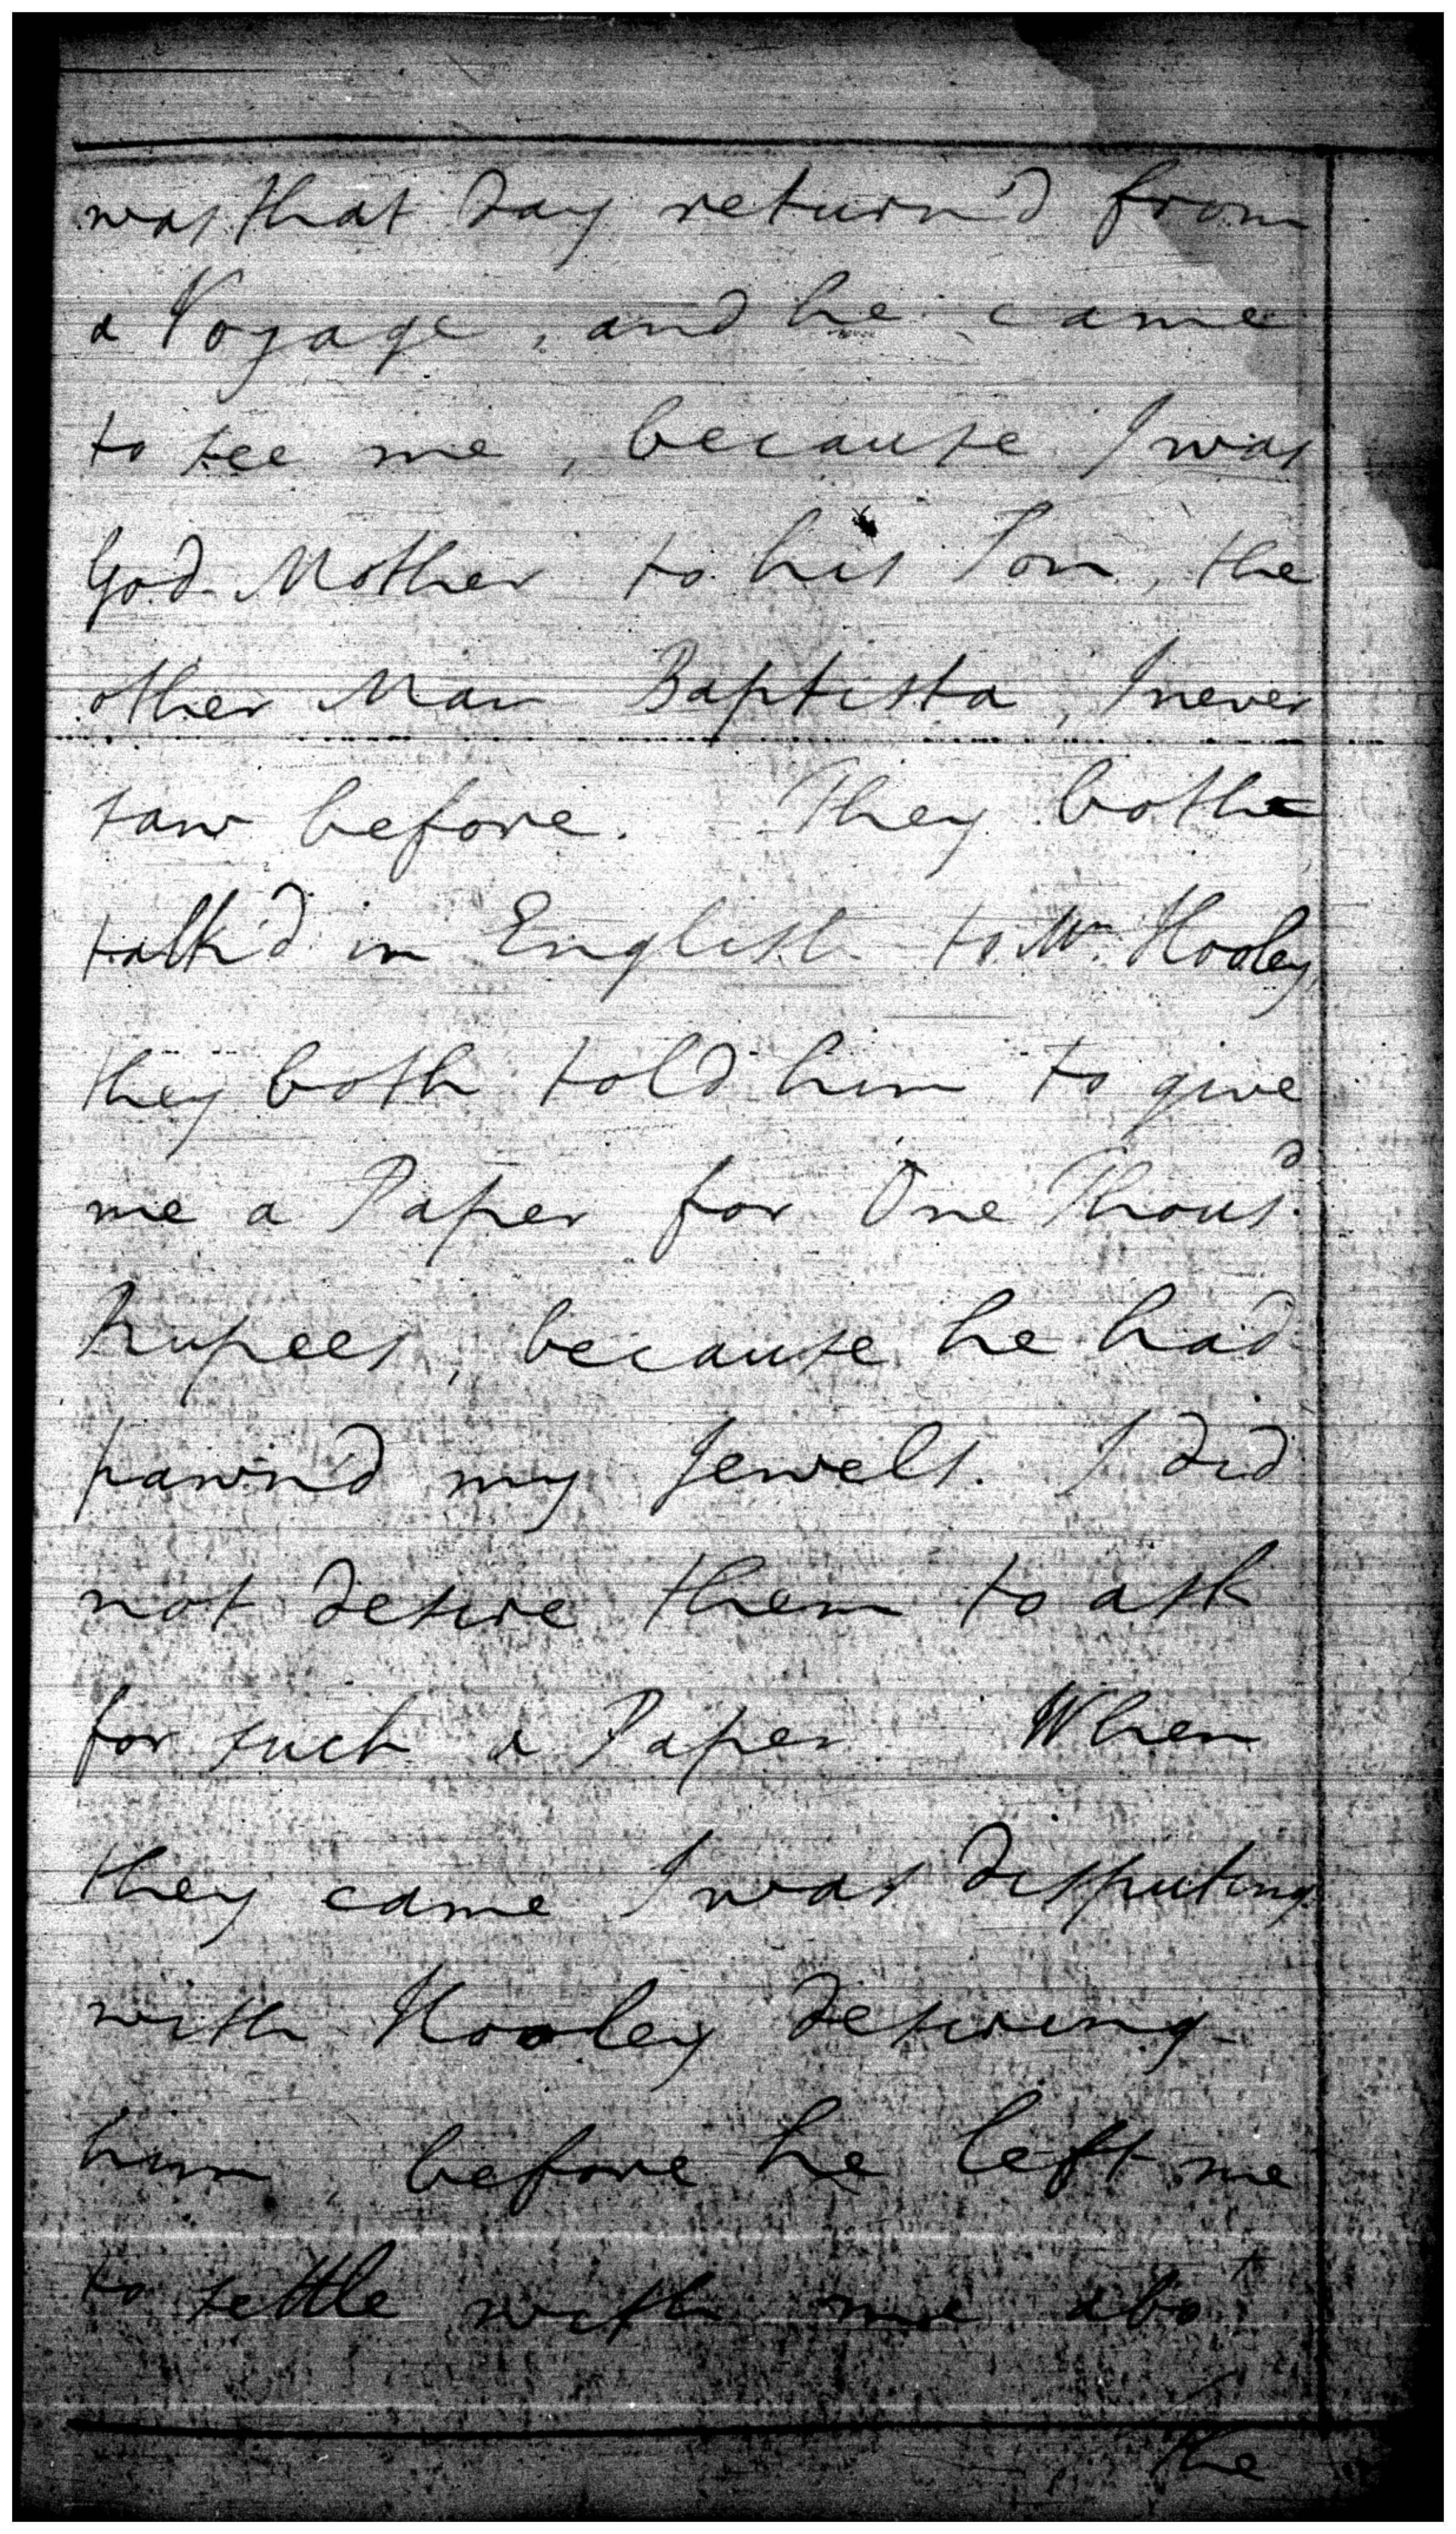 was that day return'd from
a Voyage, and he came
to see me, because I was
God Mother to his Son, the
other Man Baptista, I never
saw before. They both
talk'd in English to Mr. Hooley,
they both told him to give
me a Paper for One Thousd.
Rupees, because he had
pawn'd my Jewels. I did
not desire them to ask
for such a Paper When
they came I was disputing
with Hooley desiring
him, before he left me
to settle with me abot
the